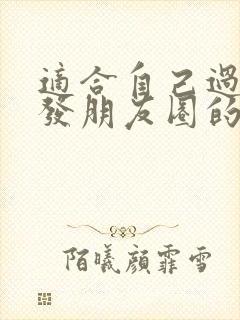 適合自己過
發朋友圈的
陌曦顏霏雪